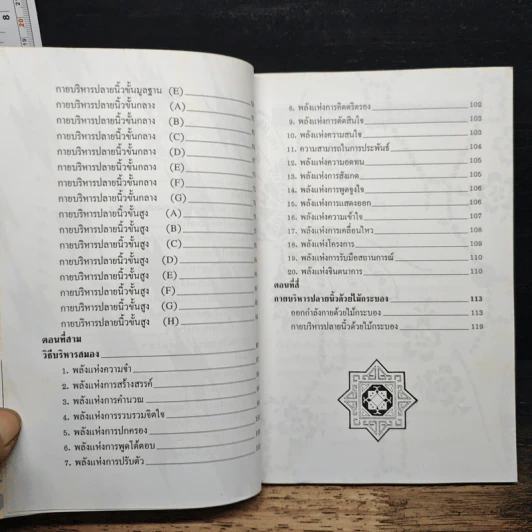 กายบริหารปลายนิ้วขั้นมูลฐาน (E)
กายบริหารปลายนิ้วขั้นกลาง (A)
กายบริหารปลายนิ้วขั้นกลาง (B)
กายบริหารปลายนิ้วขั้นกลาง (C)
กายบริหารปลายนิ้วขั้นกลาง (D)
กายบริหารปลายนิ้วขั้นกลาง (E)
กายบริหารปลายนิ้วขั้นกลาง (F)
กายบริหารปลายนิ้วขั้นกลาง (G)
กายบริหารปลายนิ้วขั้นสูง (A)
กายบริหารปลายนิ้วขั้นสูง (B)
กายบริหารปลายนิ้วขั้นสูง (C)
กายบริหารปลายนิ้วขั้นสูง (D)
กายบริหารปลายนิ้วขั้นสูง (E)
กายบริหารปลายนิ้วขั้นสูง (F)
กายบริหารปลายนิ้วขั้นสูง (G)
กายบริหารปลายนิ้วขั้นสูง (H)
ตอนที่สาม
วิธีบริหารสมอง
1. พลังแห่งความจำ
2. พลังแห่งการสร้างสรรค์
3. พลังแห่งการคำนวณ
4. พลังแห่งการรวบรวมจิตใจ
5. พลังแห่งการปกครอง
6. พลังแห่งการพูดโต้ตอบ
7. พลังแห่งการปรับตัว
8. พลังแห่งการคิดตริตรอง 102
9. พลังแห่งการตัดสินใจ 103
10. พลังแห่งความสนใจ 103
11. ความสามารถในการประพันธ์ 104
12. พลังแห่งความอดทน 105
13. พลังแห่งการสังเกต 105
14. พลังแห่งการพูดจูงใจ 106
15. พลังแห่งการแสดงออก 106
16. พลังแห่งความเข้าใจ 107
17. พลังแห่งการเคลื่อนไหว 108
18. พลังแห่งโครงการ 109
19. พลังแห่งการรับมือสถานการณ์ 110
20. พลังแห่งจินตนาการ 110
ตอนที่สี่
กายบริหารปลายนิ้วด้วยไม้กระบอง 113
ออกกำลังกายด้วยไม้กระบอง 113
กายบริหารปลายนิ้วด้วยไม้กระบอง 119